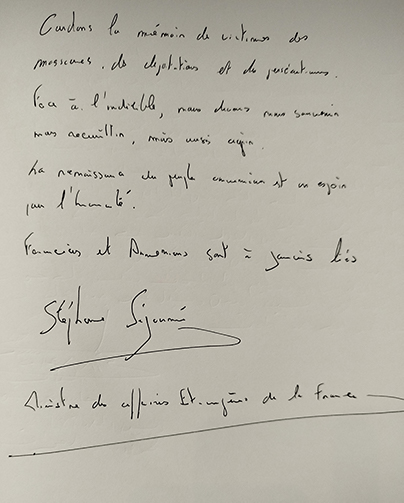 Gardons la mémoire de victimes des
massacres, de déportations et de persécutions.
Face à l'indicible, nous devons nous souvenir
nous recueillir, mais aussi agir.
La renaissance du peuple arménien est un espoir
pour l'humanité.
Français et Arméniens sont à jamais liés
Stéphane Séjourné
Ministre des affaires Etrangères de la France